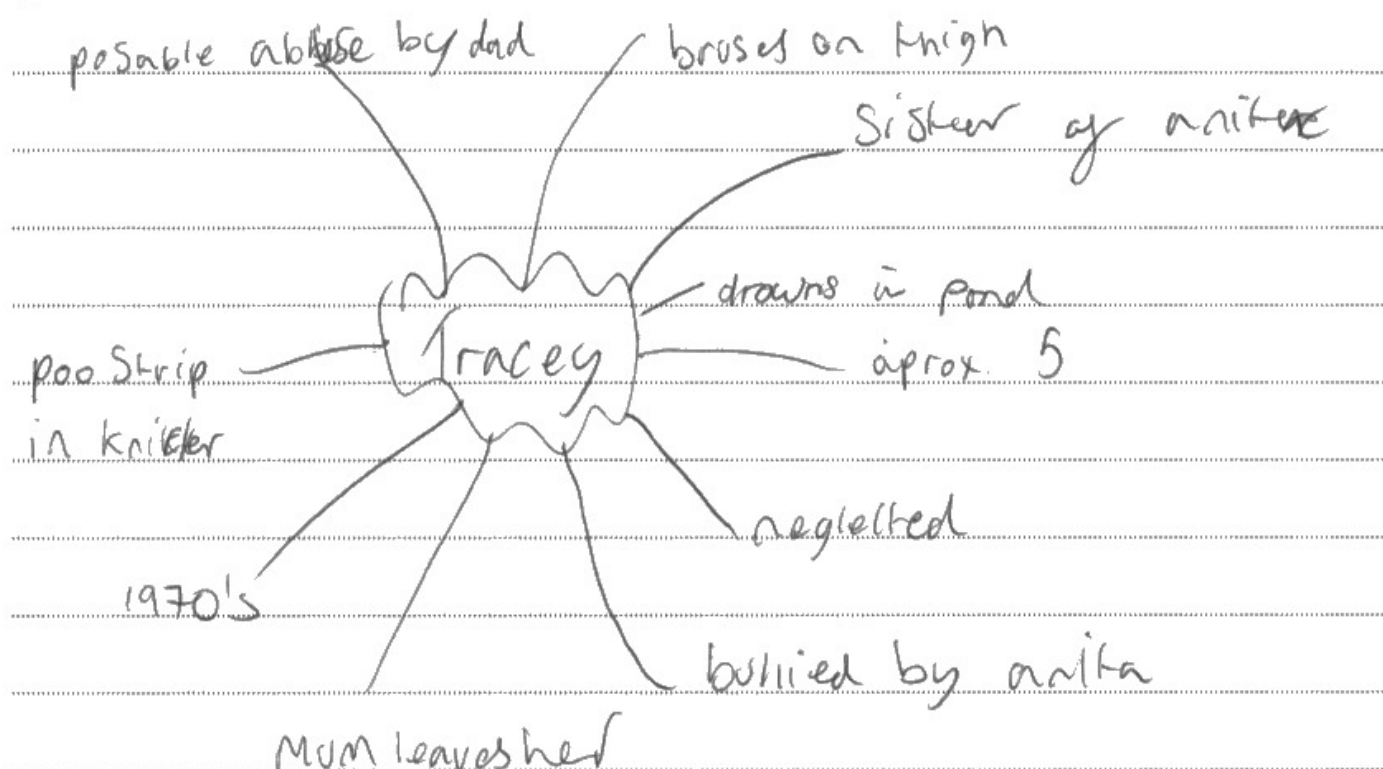 posable abuse by dad
bruses on thigh
Sister of anita
drowns in pond
Tracey
aprox. 5
poo Strip
in knicker
neglected
1970's
bullied by anita
Mum leaves her